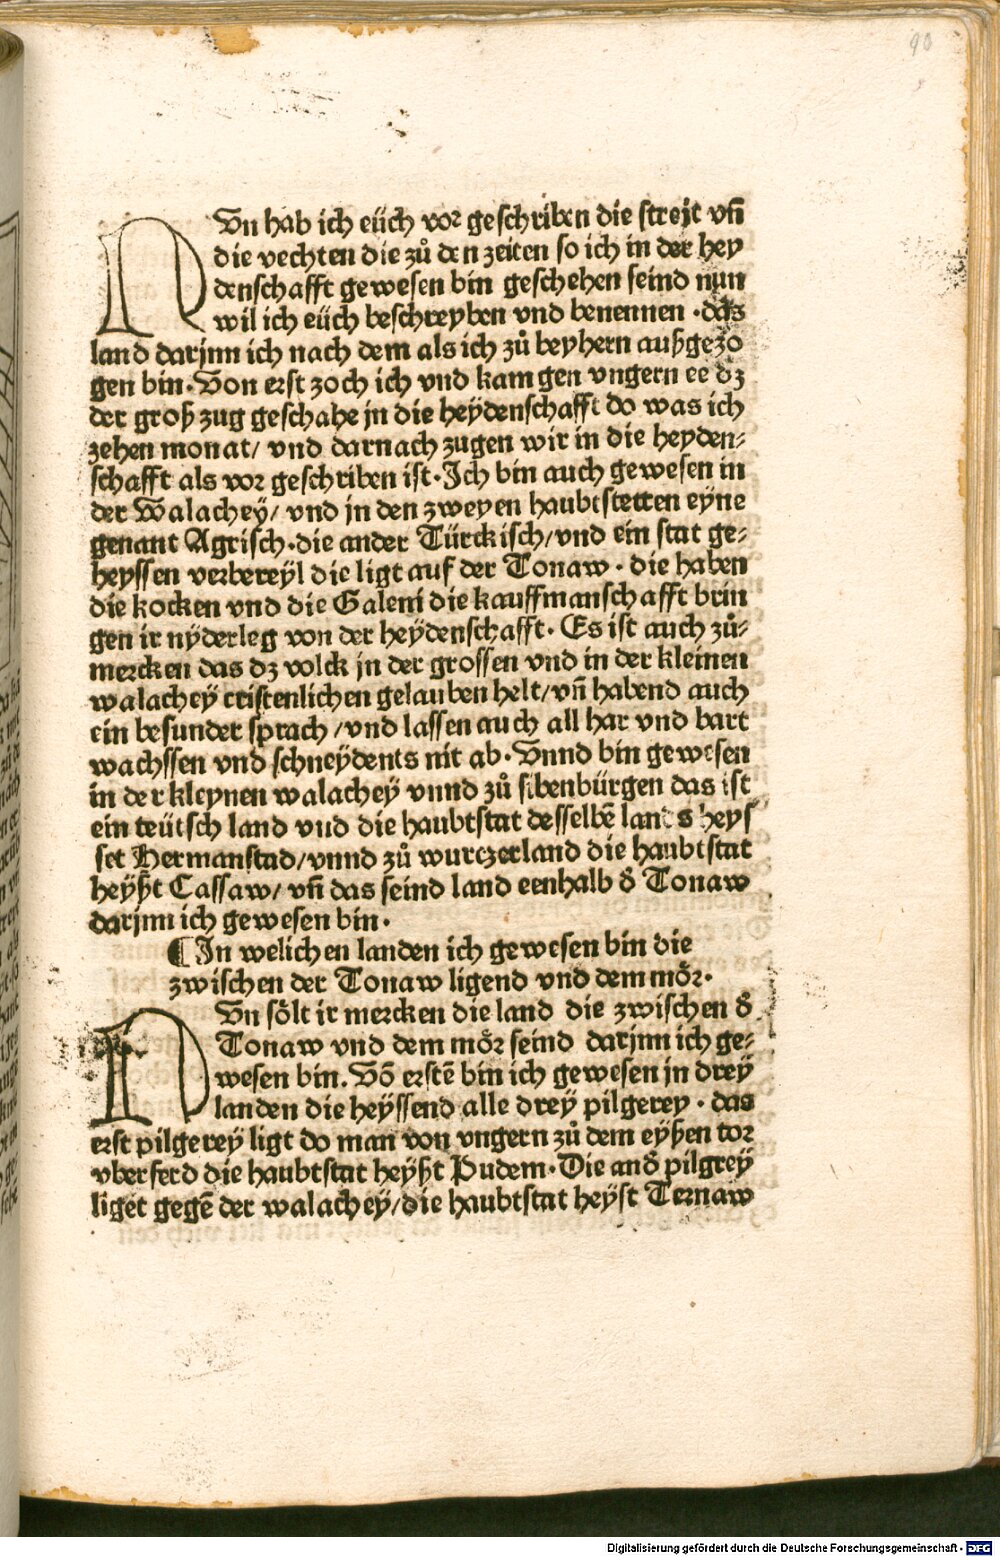 90
NUn hab ich eüch vor geschriben die streit vñ
die vechten die zů den zeiten so ich in der hey
denschafft gewesen bin geschehen seind nun
wil ich eüch beschreyben vnd benennen · das
land darjnn ich nach dem als ich zů beyhern außgezo
gen bin· Von erst zoch ich vnd kam gen vngern ee dz
der groß zug geschahe jn die heÿdenschafft do was ich
zehen monat/ vnd darnach zugen wir in die heyden⸗
schafft als vor geschriben ist· Ich bin auch gewesen in
der Walacheÿ/ vnd jn den zweyen haubtstetten eyne
genant Agrisch·die ander Türckisch/vnd ein stat ge⸗
heyssen verbereÿl die ligt auf der Tonaw · die haben
die kocken vnd die Galeni die kauffmanschafft brin
gen ir nÿderleg von der heÿdenschafft· Es ist auch zů⸗
mercken das dz volck jn der grossen vnd in der kleinen
walacheÿ cristenlichen gelauben helt/vñ habend auch
ein besunder sprach /vnd lassen auch all har vnd bart
wachssen vnd schneÿdents nit ab· Vnnd bin gewesen
in der kleynen walacheÿ vnnd zů sibenbürgen das ist
ein teütsch land vnd die haubtstat desselbẽ lands heys
set Hermanstad/vnnd zů wurczerland die haubtstat
heÿßt Cassaw/ vñ das seind land eenhalb d̕ Tonaw
darjnn ich gewesen bin·
¶ In welichen landen ich gewesen bin die
zwischen der Tonaw ligend vnd dem mȏr·
NUn sȏlt ir mercken die land die zwischen d̕
Tonaw vnd dem mȏr seind darjnn ich ge⸗
wesen bin. Võ erstẽ bin ich gewesen jn dreÿ
landen die heÿssend alle dreÿ pilgerey · das
erst pilgereÿ ligt do man von vngern zů dem eyßen tor
vberferd die haubtstat heÿßt Pudem· Die and̕ pilgreÿ
liget gegẽ der walacheÿ/die haubtstat heyst Ternaw
Digitalisierung gefördert durch die Deutsche Forschungsgemeinschaft - DFG